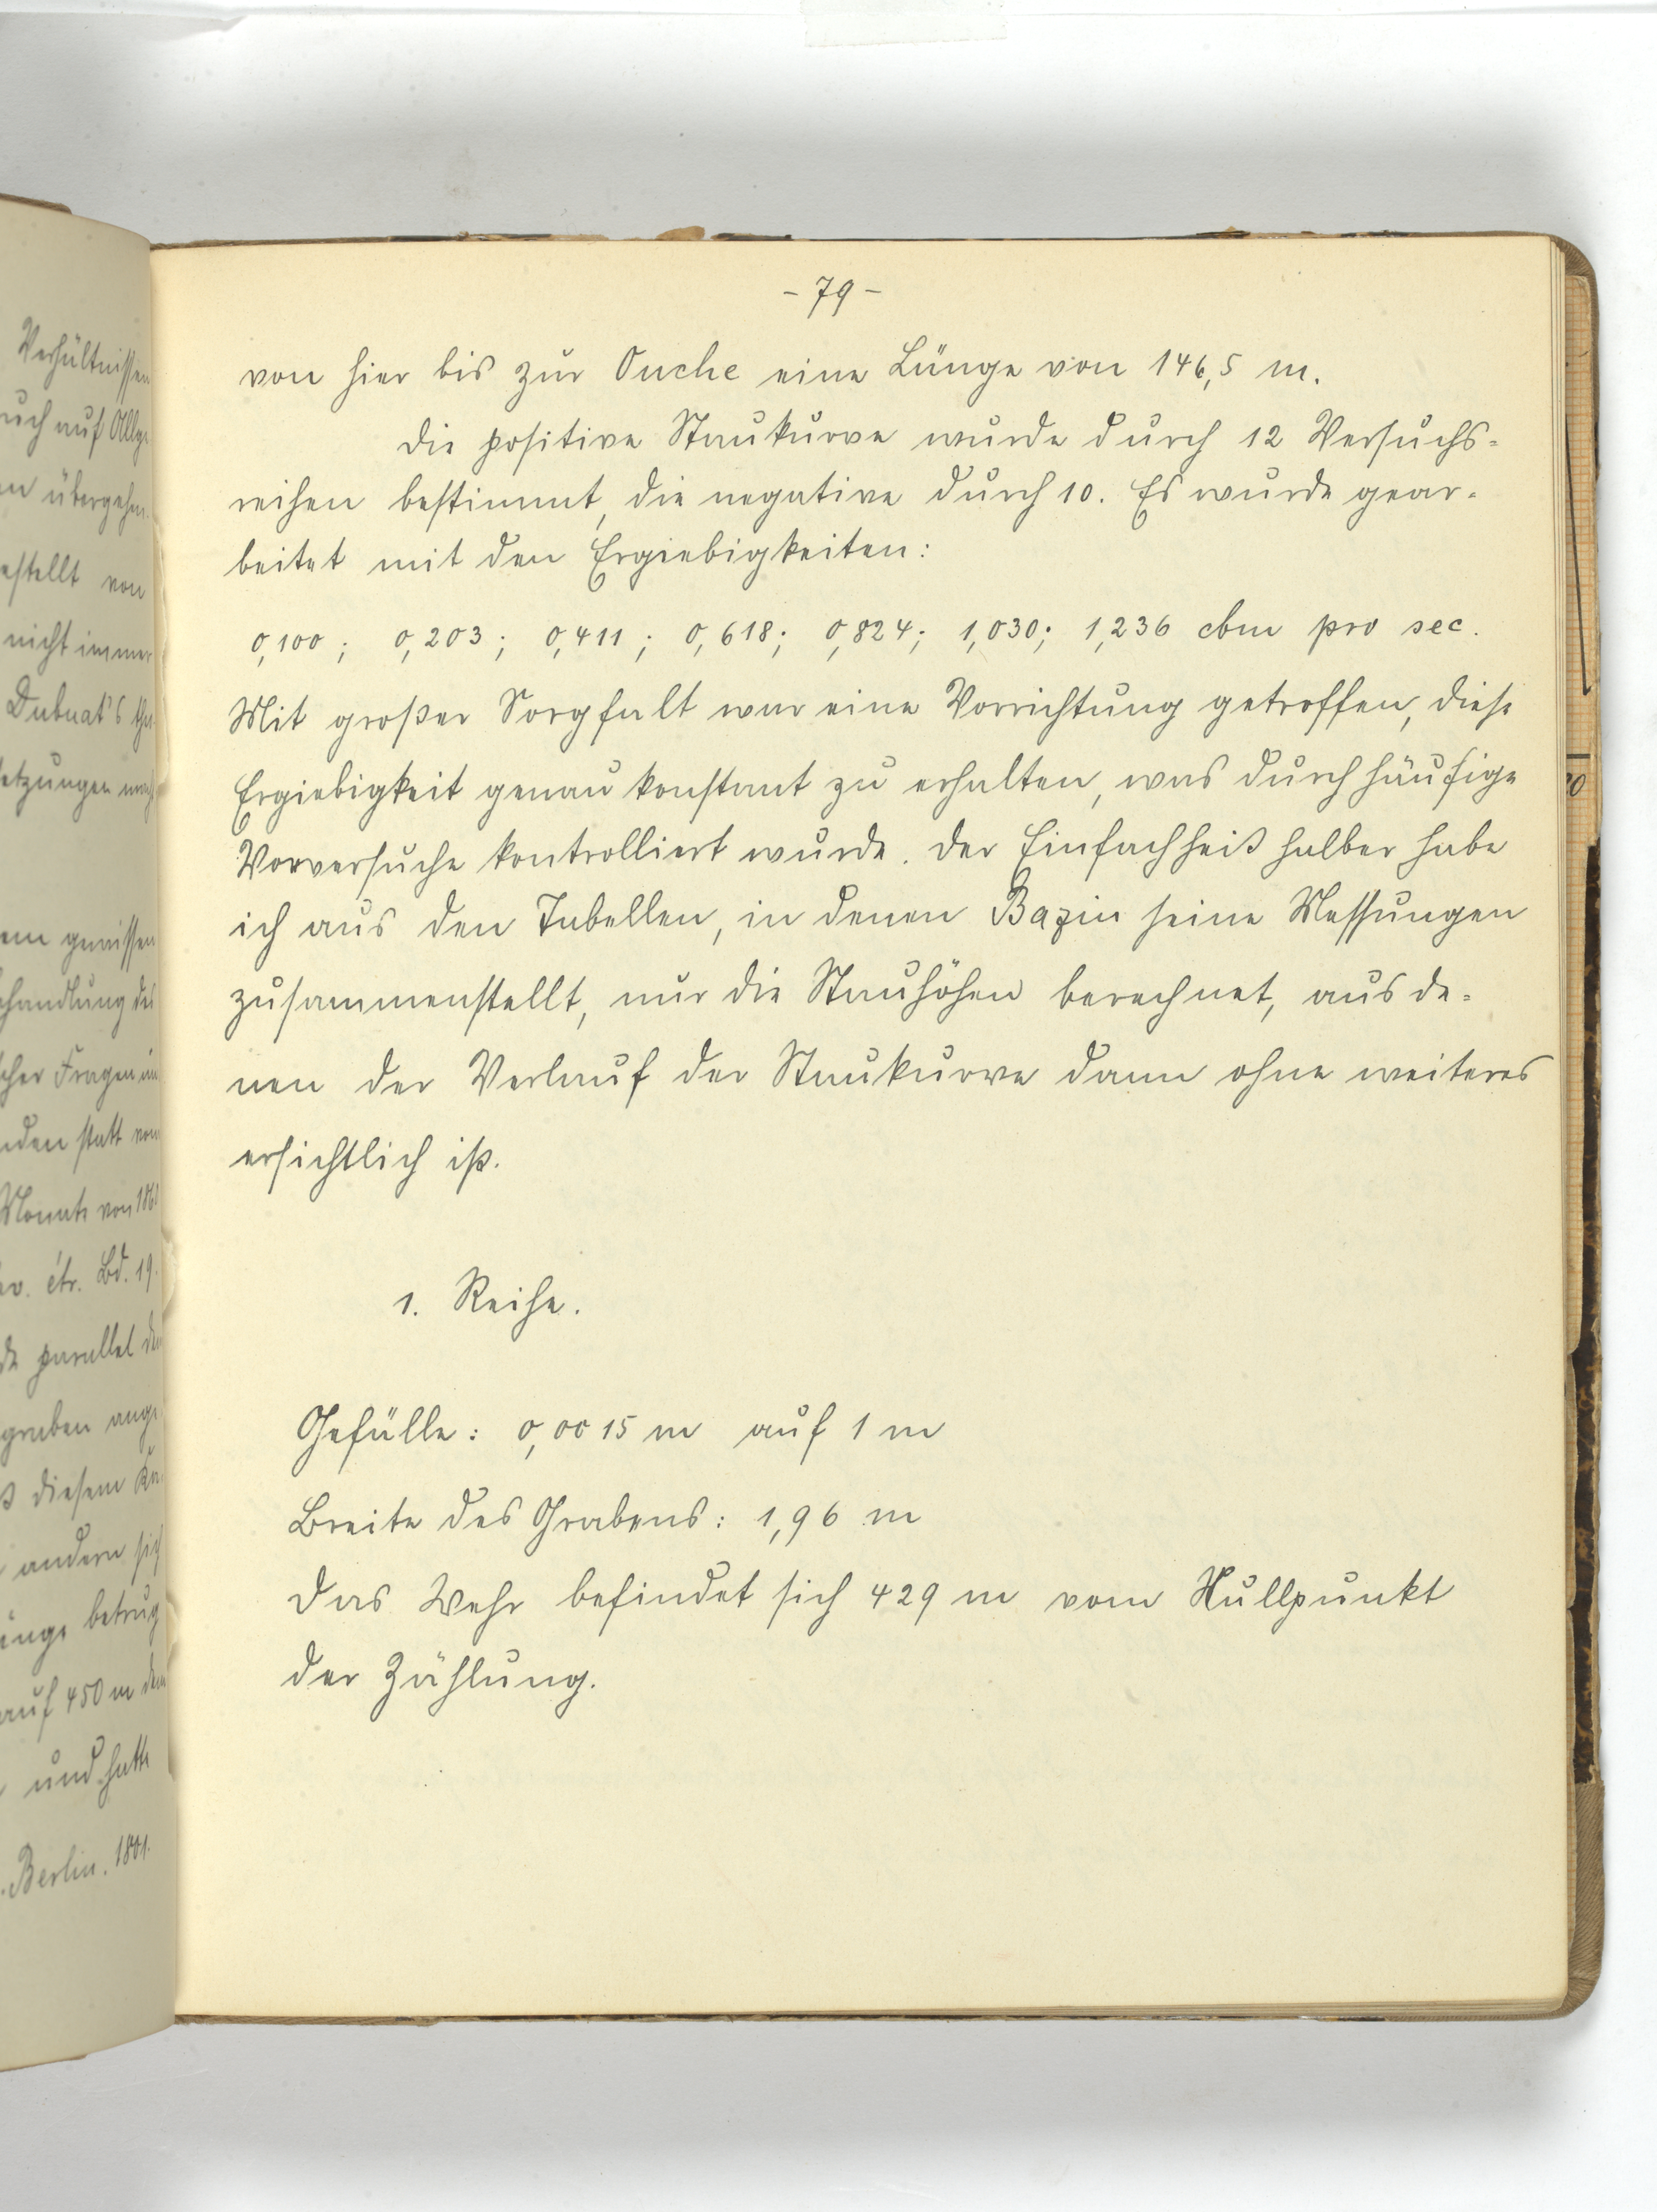 - 79 -
von hier bis zur Ouche eine Länge von 146,5 m.
Die positive Staukurve wurde durch 12 Versuchs=
reihen bestimmt, die negative durch 10. Es wurde gear-
beitet mit den Ergiebigkeiten:
0,100; 0,203; 0,411; 0,618; 0,824; 1,030; 1,236 cbm pro sec.
Mit großer Sorgfalt war eine Vorrichtung getroffen, diese
Ergiebigkeit genau konstant zu erhalten, was durch häufige
Vorversuche kontrolliert wurde. Der Einfachheit halber habe
ich aus den Tabellen, in denen Bazin seine Messungen
zusammenstellt, nur die Stauhöhen berechnet, aus de=
nen der Verlauf der Staukurve dann ohne weiteres
ersichtlich ist.
1. Reihe.
Gefälle: 0,0015 m auf 1 m
Breite des Grabens: 1,96 m
Das Wehr befindet sich 429 m vom Nullpunkt
der Zählung.
Verhältnissen
auf
übergehen
von
nicht immer
Dubuat's
gewissen
Fragen
statt
von
étr. Bd. 19.
parallel
graben
diesem
andern
betrug
auf 450 m
und hatte
Berlin.